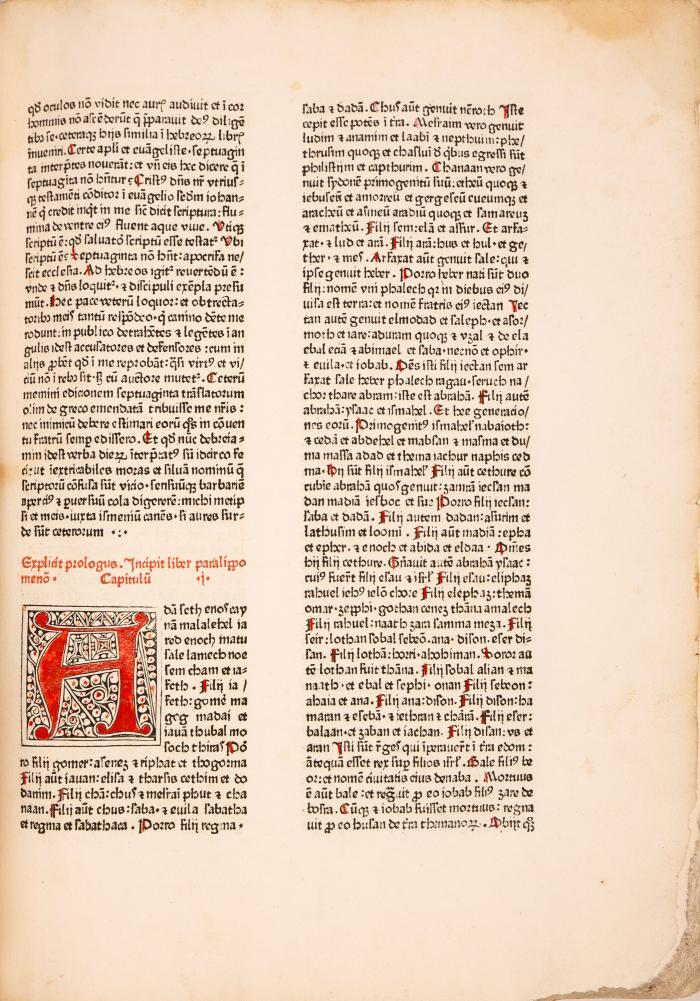 qđ oculos nō vidit nec aurꝭ audiuit et ī cor
hominis nō ascēderūt q̄ p̄parauit deꝰ diligē
tibꝰ se. ceteraqꝫ hijs similia ī hebreoꝝ librꝭ
inueniri. Certe apli et euāgeliste septuagin
ta interp̄tes nouerāt: et vn̄ eis hec dicere q̄ ī
septuaginta nō hn̄tur? Cristꝰ dn̄s nr̄ vtrius-
qꝫ testamēti cōditor ī euāgelio sedm iohan-
nē q̄ credit inqͭ in me sic̄ dicit scriptura: flu-
mina de ventre eiꝰ fluent aque viue. Vtiqꝫ
scriptū ē: qđ saluatoꝛ scriptū esse testatͬ Vbi
scriptū ē? septuaginta nō hn̄t: apocrifa ne/
scit ecclesia. Ad hebreos igitͬ reuertēdū ē:
vnde & dn̄s loquitͬ. & discipuli exēpla presu
mūt. Hec pace veterū loquor: et obtrecta-
toribꝰ meis tantū respōdeo. q̄ canino dēte me
rodunt: in publico detrahētes & legētes ī an
gulis idest accusatores et defensores: cum in
alijs ꝓbēt qđ ī me reprobāt: q̄si virtꝰ et vi/
ciū nō ī rebꝰ sit. sꝫ cū auctore mutetͬ. Ceterū
memini ediconem septuaginta trāslatorum
olim de greco emendatā tribuisse me nr̄is:
nec inimicū debere estimari eorū q̄s in cōuen
tu fratrū semꝑ edissero. Et qđ nūc debreia-
min idest verba dieꝝ īterp̄tatꝰ sū idcirco fe
ci: vt īextricabiles moras et siluā nominū q̄
scriptorū cōfusa sūt vicio. sensuūqꝫ barbariē
aperciꝰ & ꝑ versuū cola digererē: michi metip̄
si et meis. iuxta ismeniū canēs. si aures sur-
de sūt ceterorum
Explicit prologus. Incipit liber paralippo
menō. Capitulū .i.
Adā seth enos cay
nā malalehel ia
red enoch matu
sale lamech noe
sem cham et ia-
feth. Filij ia/
feth: gomē ma
gog madai et
iauā thubal mo
soch thiras Po
ro filij gomer: asenez & riphat et thogorma
Filij aūt iauan: elisa & tharsis cethim et do
danim. Filij chā: chus & mesrai phut & cha
naan. Filij aūt chus: saba. & euila sabatha
et regma et sabathaca. Porro filij regma.
saba & dadā. Chus aūt genuit nēroth Iste
cepit esse potēs ī tr̄a. Mesraim vero genuit
ludim & anamim et laabī & nepthuim: phe/
thrusim quoqꝫ et chasluī đ q̄bus egressi sūt
philistijm et capthurim. Chanaan vero ge-
nuit sydonē primogenitū suū: etheū quoqꝫ &
iebuseū et amorreū et gergeseū eueumqꝫ et
aracheū et asineū aradiū quoqꝫ et samareuꝫ
& ematheū. Filij sem: elā et assur. Et arfa-
xat. & lud et arā. Filij arā: hus et hul. et ge/
ther. & mes. Arfaxat aūt genuit sale: qui &
ipse genuit heber. Porro heber nati sūt duo
filij: nomē vni phalech qꝛ in diebus eiꝰ di/
uisa est terra: et nomē fratris eiꝰ iectan Iec
tan autē genuit elmodad et saleph. et asor/
moth et iare: aduram quoqꝫ & vzal & de cla
ebal eciā & abimael et saba. necnō et ophir.
& euila. et iobab. Oēs isti filij iectan sem ar
faxat sale heber phalech ragau. seruch na/
chor thare abram: iste est abrahā. Filij autē
abrahā: ysaac et ismahel. Et hee generacio/
nes eorū. Primogenitꝰ ismahelͬ nabaioth:
& cedā et abdehel et mabsan & masma et du/
ma massa adad et thema iachur naphis ced
ma. Hij sūt filij ismahelͬ Filij aūt cethure cō
cubīe abrahā quos genuit: zamrā iecsan ma
dan madiā iesboc et sue Porro filij iecsan:
saba et dadā. Filij autem dadan: asurim et
lathusim et loomī. Filij aūt madiā: epha
et epher. & enoch et abida et eldaa. Om̄es
hij filij cethure. Gn̄auit autē abrahā ysaac:
cuiꝰ fuerūt filij esau & isrl̄ Filij esau: eliphaz
rahuel iehꝰ ielō chore Filij elephaz: themā
omar. zepphi. gothan cenez thāna amalech
Filij rahuel: naath zara samma meza. Filij
seir: lothan sobal sebeō. ana. dison. eser di-
san. Filij lothā: horri. ahohiman. Soror au
tē lothan fuit thāna. Filij sobal alian & ma
naath. et ebal et sephi. onan Filij sebeon:
ahaia et ana. Filij ana: dison. Filij dison: ha
maran & esebā. & iethran & charā. Filij eser:
balaan. et zaban et iachan. Filij disan: vs et
aran Isti sūt r̄ges qui īperauer̄t ī tr̄a edom:
āteq̄ esset rex suꝑ filios isrl̄. Bale filiꝰ be
or: et nomē ciuitatis eius denaba. Mortuus
ē aūt bale: et reḡuit ꝓ eo iobab filiꝰ zare de
bosra. Cūqꝫ & iobab fuisset mortuus: regna
uit ꝓ eo husan de tr̄a themanoꝝ. Obijt qꝫ